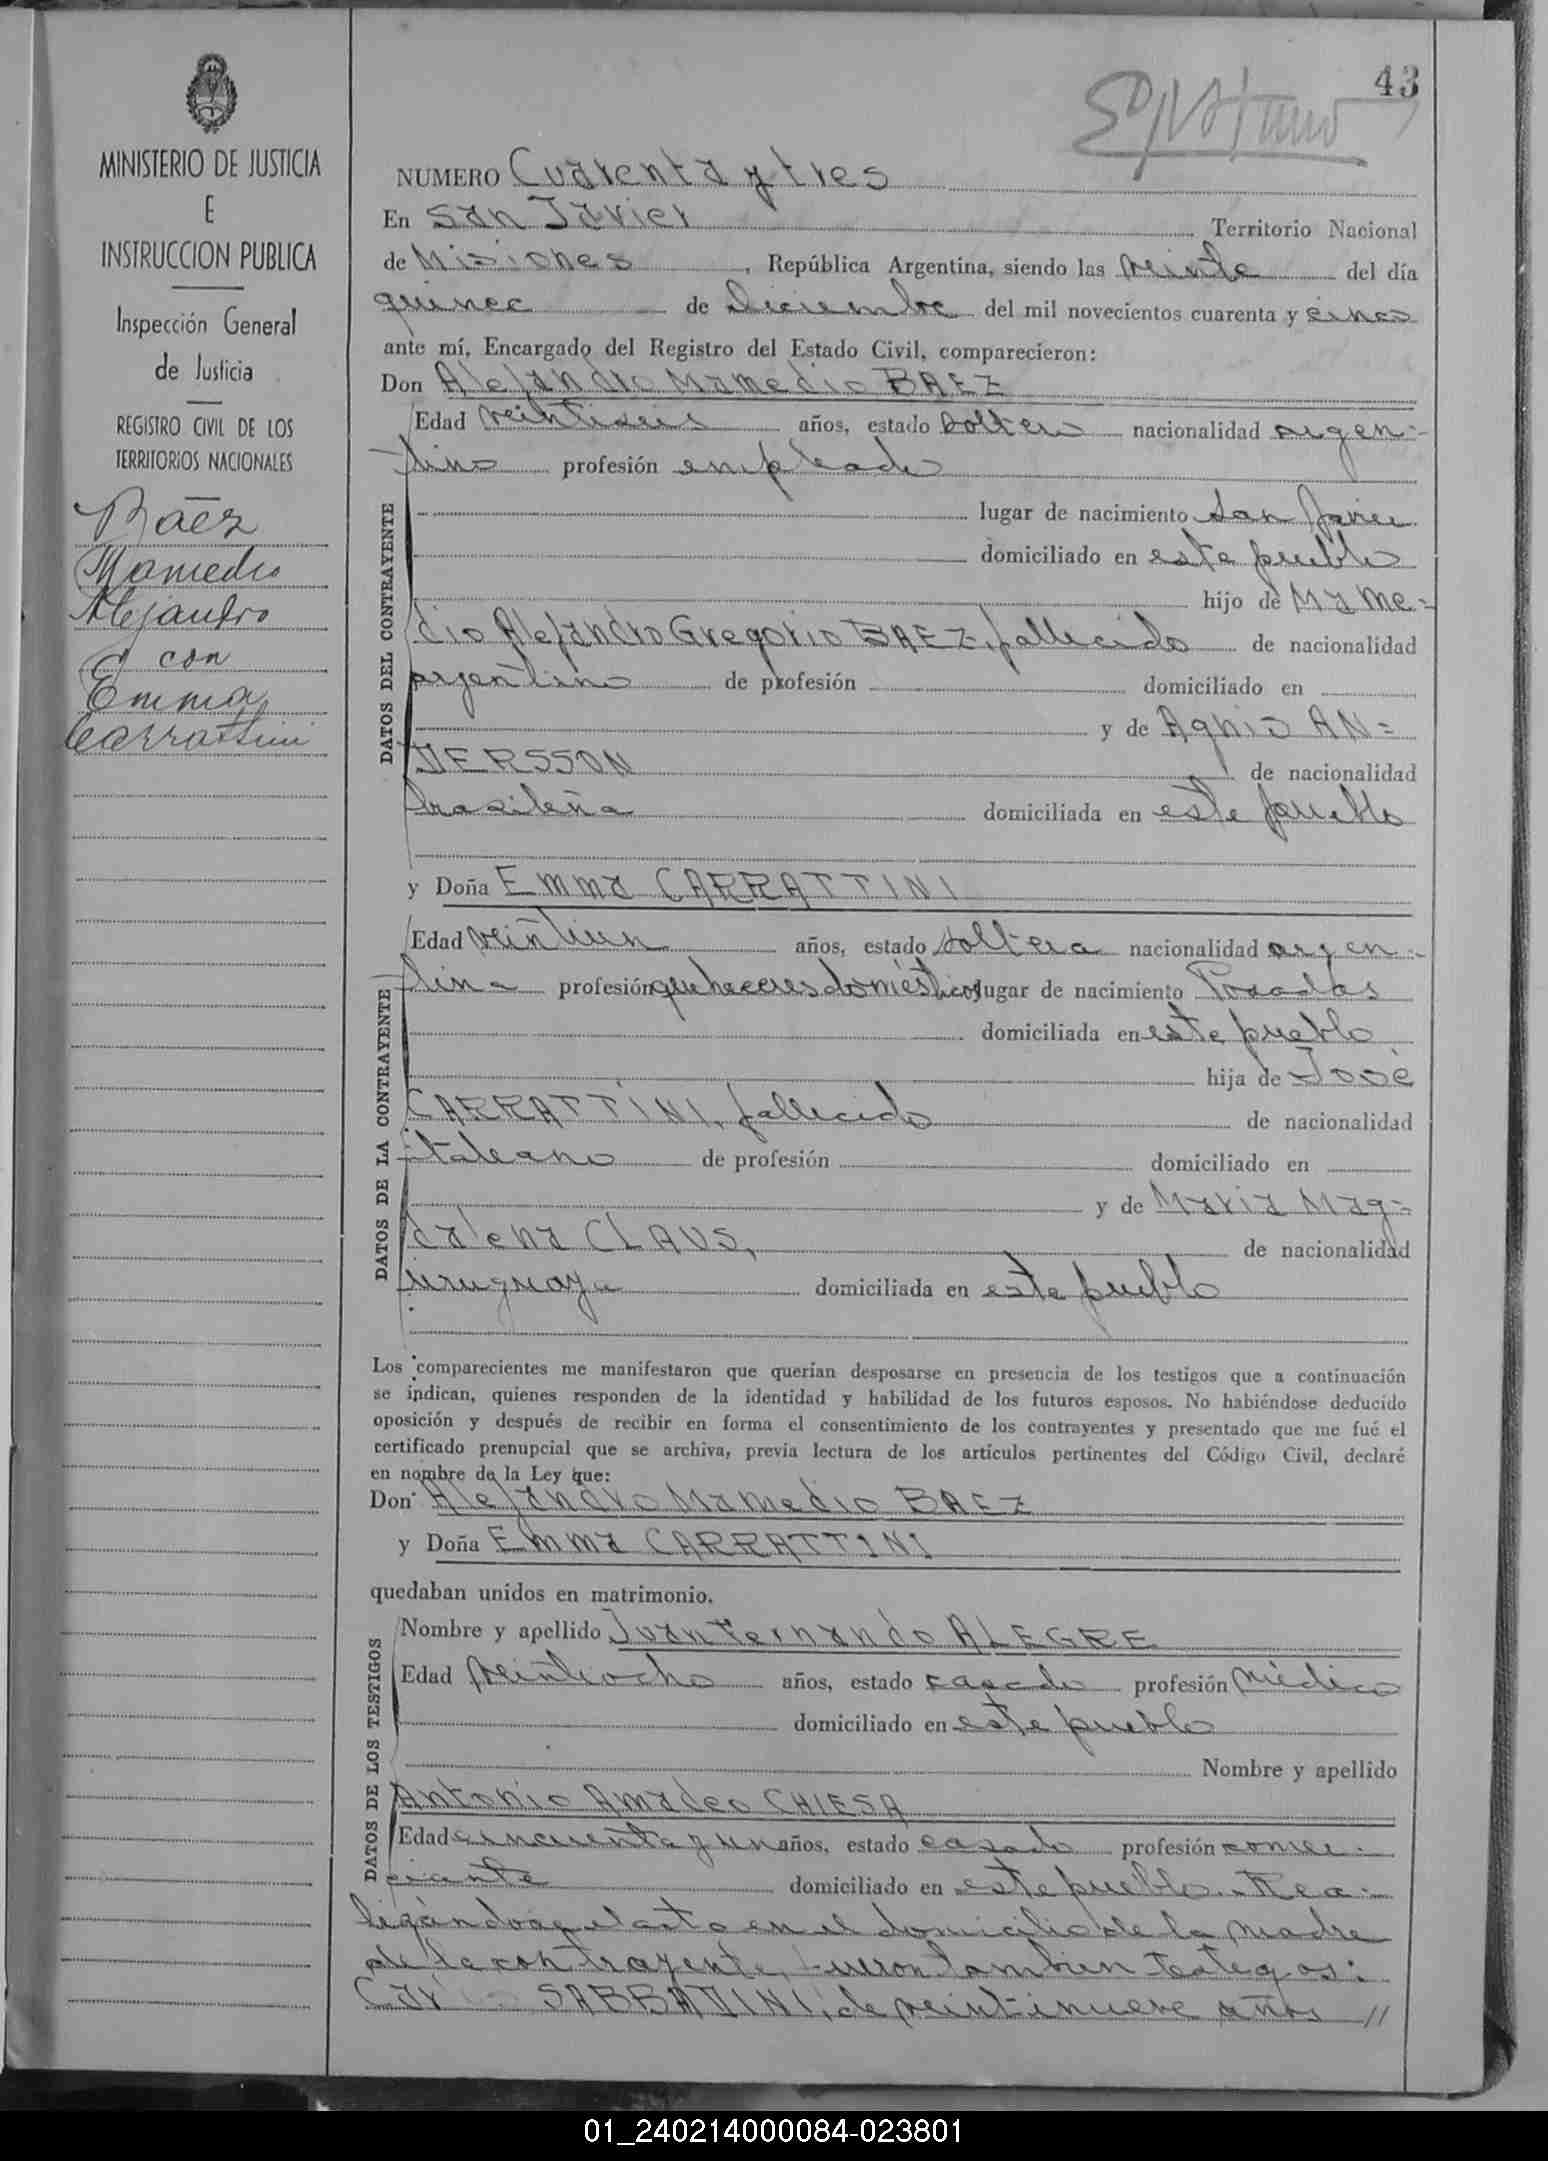 43
MINISTERIO DE JUSTICIA
E
INSTRUCCION PUBLICA
Inspección General
de Justicia
REGISTRO CIVIL DE LOS
TERRITORIOS NACIONALES
Báez
Mamedio
Alejandro
con
Emma
Carrattini
NUMERO Cuarenta y tres
En San Javier Territorio Nacional
de Misiones, República Argentina, siendo las veinte del día
quince de Diciembre del mil novecientos cuarenta y cinco
ante mí, Encargado del Registro del Estado Civil, comparecieron:
Don Alejandro Mamedio BAEZ
DATOS DEL CONTRAYENTE
Edad veintiseis años, estado soltero nacionalidad argen-
tino profesión empleado
lugar de nacimiento San Javier
domiciliado en este pueblo
hijo de Mame-
dio Alejandro Gregorio BAEZ, fallecido de nacionalidad
argentino de profesión domiciliado en
y de Agnis AN=
DERSSON de nacionalidad
brasileña domiciliada en este pueblo
y Doña Emma CARRATTINI
DATOS DE LA CONTRAYENTE
Edad veintiun años, estado soltera nacionalidad argen-
tina profesión quehaceres domésticos lugar de nacimiento Posadas
domiciliada en este pueblo
hija de José
CARRATTINI, fallecido de nacionalidad
italiano de profesión domiciliado en
y de Maria Mag-
dalena CLAUS, de nacionalidad
uruguaya domiciliada en este pueblo
Los comparecientes me manifestaron que querían desposarse en presencia de los testigos que a continuación
se indican, quienes responden de la identidad y habilidad de los futuros esposos. No habiéndose deducido
oposición y después de recibir en forma el consentimiento de los contrayentes y presentado que me fué el
certificado prenupcial que se archiva, previa lectura de los artículos pertinentes del Código Civil, declaré
en nombre de la Ley que:
Don Alejandro Mamedio BAEZ
y Doña Emma CARRATTINI
quedaban unidos en matrimonio.
DATOS DE LOS TESTIGOS
Nombre y apellido Juan Fernando ALEGRE
Edad veintiocho años, estado casado profesión médico
domiciliado en este pueblo
Nombre y apellido
Antonio Amadeo CHIESA
Edad cincuenta y un años, estado casado profesión comer-
ciante domiciliado en este pueblo.- Rea-
lizándose el acto en el domicilio de la madre
de la contrayente, fueron tambien testigos:
SABBADINI, de veintinueve años //
01_240214000084-023801